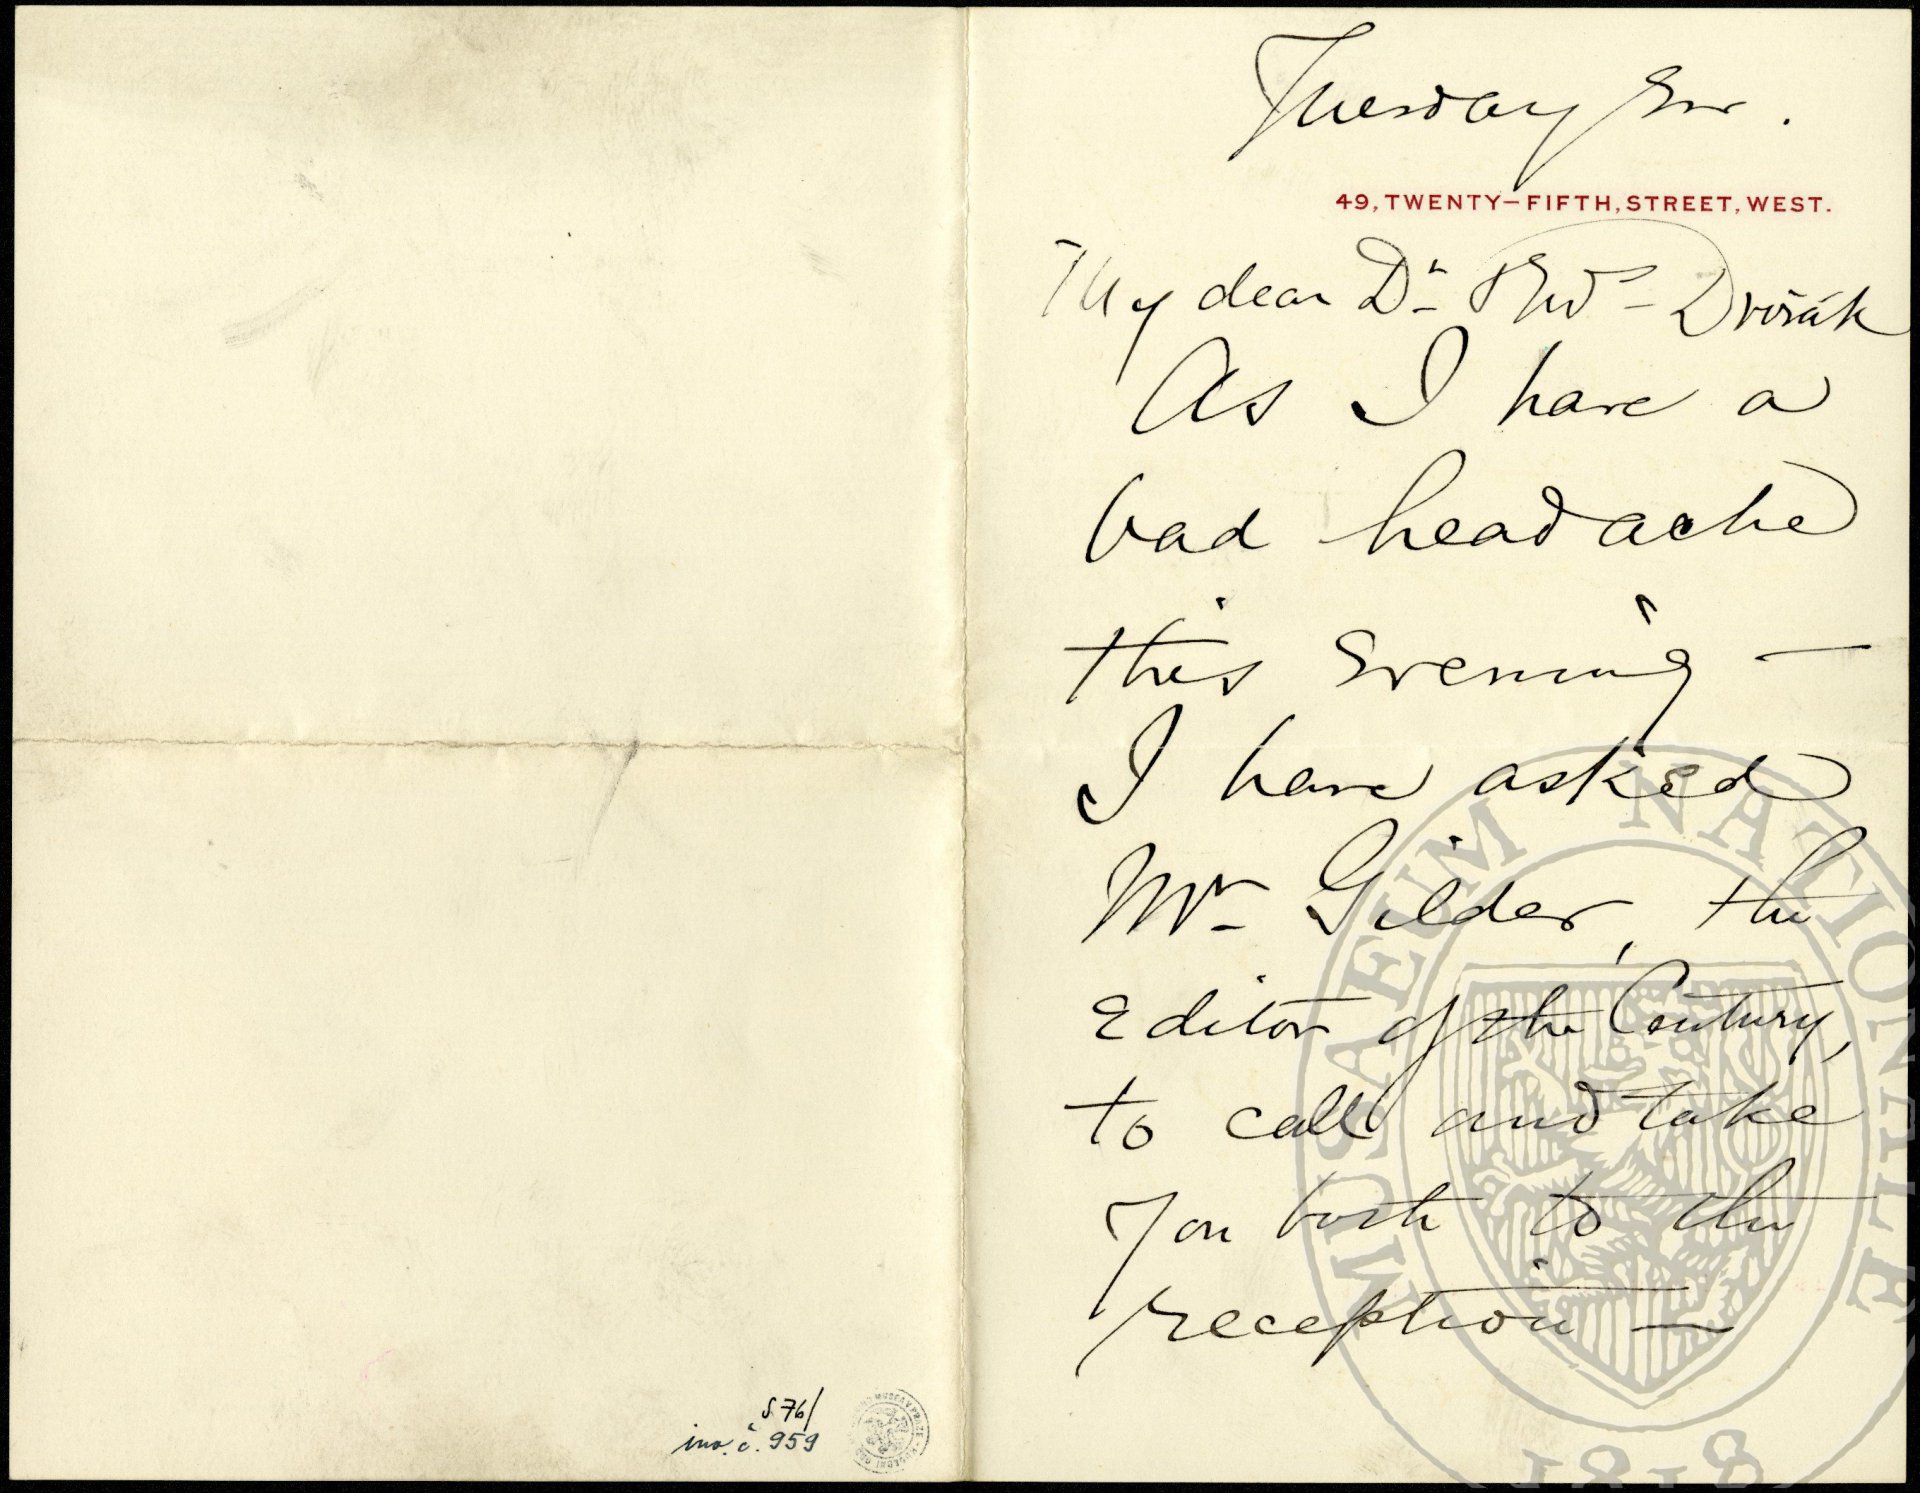 Tuesday Eve.
49, TWENTY–FIFTH, STREET, WEST.
My dear Dr. & Mrs. Dvořák
As I have a
bad headache
this Evening —
I have asked
Mr. Gilder, the
Editor of the Century,
to call and take
you both to the
reception —
S. 76/
inv. č. 959
MUSAEUM NATIONALE
1818